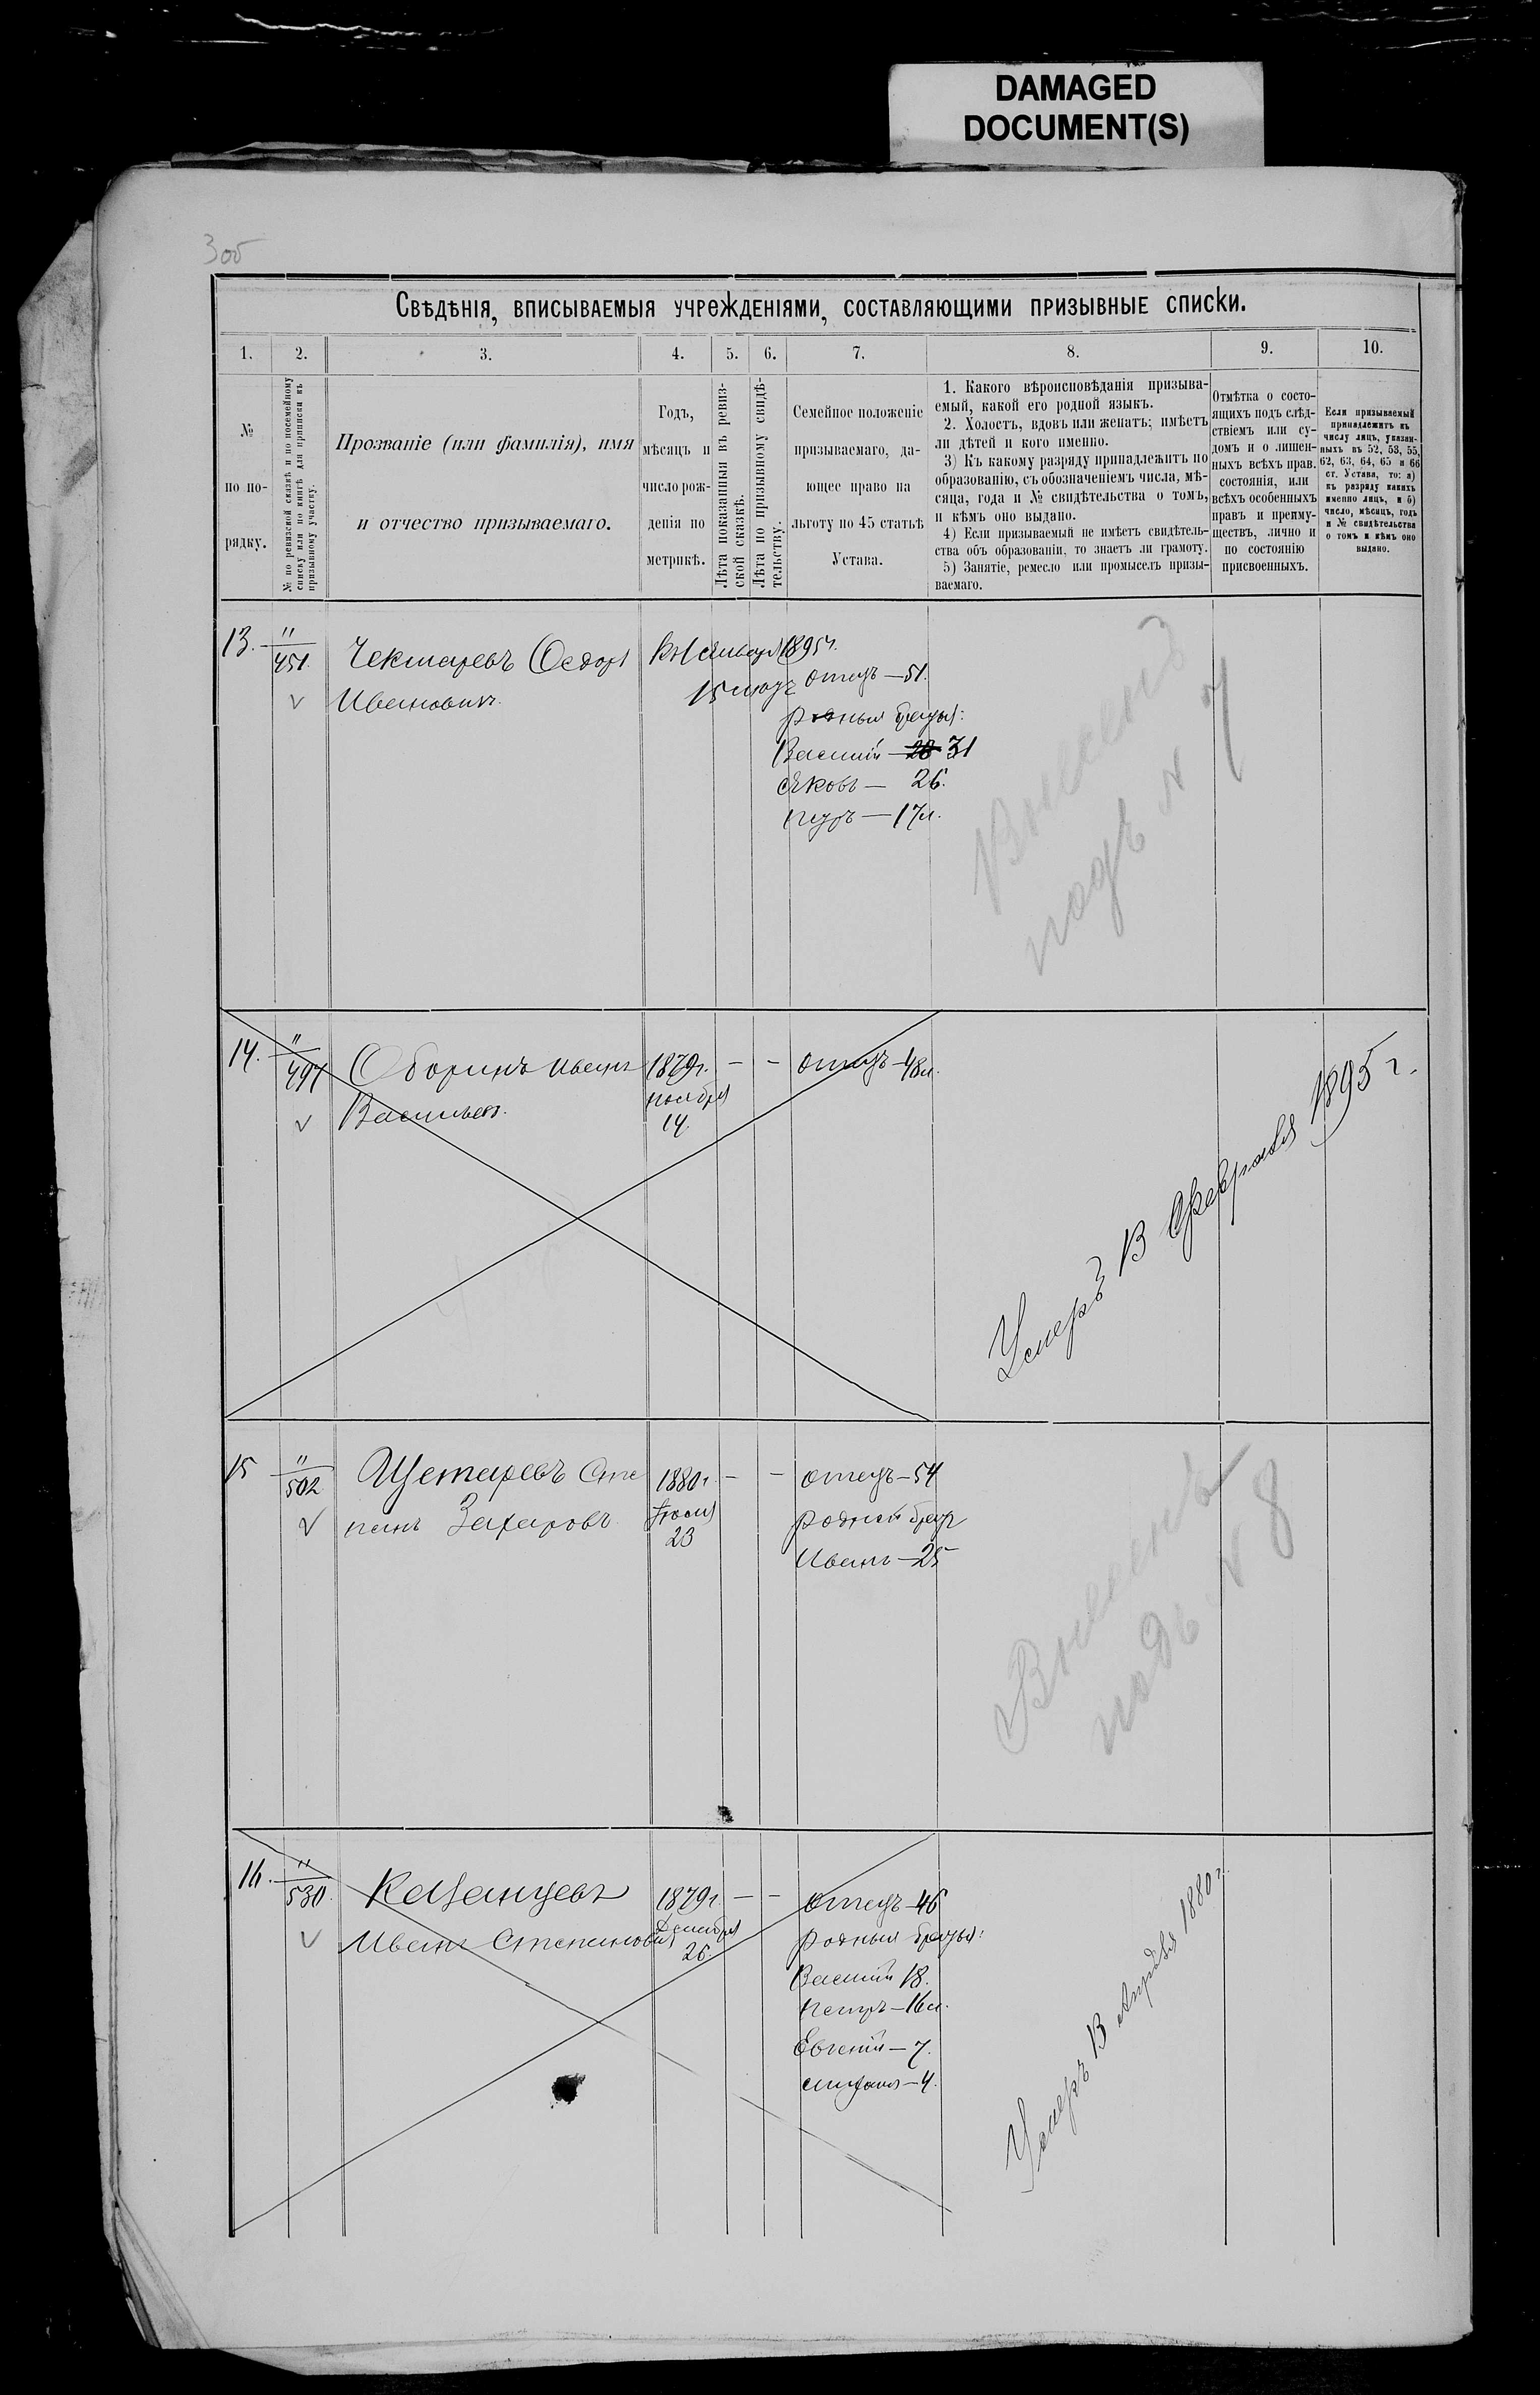 DAMAGED
DOCUMENT(S)
3об
Свѣдѣнія, вписываемыя учрежденіями, составляющими призывные списки.
1. 2. 3. 4. 5. 6. 7. 8. 9. 10.
№
по по-
рядку.
№ по ревизской сказкѣ и по посемейному
списку или по книгѣ для приписки къ
призывному участку.
Прозваніе (или фамилія), имя
и отчество призываемаго.
Годъ,
мѣсяцъ и
число рож-
денія по
метрикѣ.
Лѣта показанныя въ ревиз-
ской сказкѣ.
Лѣта по призывному свидѣ-
тельству.
Семейное положеніе
призываемаго, да-
ющее право на
льготу по 45 статьѣ
Устава.
1. Какого вѣроисповѣданія призыва-
емый, какой его родной языкъ.
2. Холостъ, вдовъ или женатъ; имѣетъ
ли дѣтей и кого именно.
3) Къ какому разряду принадлежитъ по
образованію, съ обозначеніемъ числа, мѣ-
сяца, года и № свидѣтельства о томъ,
и кѣмъ оно выдано.
4) Если призываемый не имѣетъ свидѣтель-
ства объ образованіи, то знаетъ ли грамоту.
5) Занятіе, ремесло или промыселъ призы-
ваемаго.
Отмѣтка о состо-
ящихъ подъ слѣд-
ствіемъ или су-
домъ и о лишен-
ныхъ всѣхъ прав.
состоянія, или
всѣхъ особенныхъ
правъ и преиму-
ществъ, лично и
по состоянію
присвоенныхъ.
Если призываемый
принадлежитъ къ
числу лицъ, указан-
ныхъ въ 52, 53, 55,
62, 63, 64, 65 и 66
ст. Устава, то: а)
къ разряду какихъ
именно лицъ, и б)
число, мѣсяцъ, годъ
и № свидѣтельства
о томъ и кѣмъ оно
выдано.
13. "/451. Чектаревъ Ѳедоръ
Ивановичъ
Къ 1 Января 1895 г.
15 отецъ — 51.
родныя братья:
Василій — 28 31
Яковъ — 26.
Петръ — 17 л.
Внесенъ
подъ № 7
14. "/497 Оборинъ Иванъ
Васильев.
1879 г.
ноября
14
— — отецъ — 48 л.
Умеръ 13 Февраля 1895 г.
15 "/502 Щетаревъ Сте
панъ Захаровъ
1880 г.
Іюля
23
— — отецъ — 54
родной братъ
Иванъ — 25
Внесенъ
подъ № 8
16. "/530. Казанцевъ
Иванъ Степановъ
1879 г.
Декабря
26.
— — отецъ — 46
родныя братья:
Василій 18.
Петръ — 16 л.
Евгеній — 7.
— 4.
Умеръ 13 Апрѣля 1880 г.